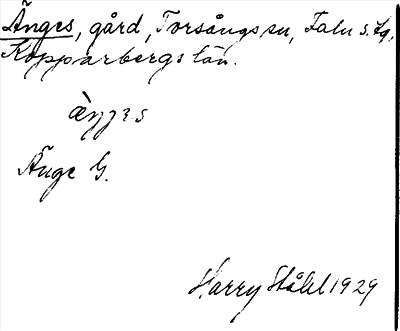 Änges, gård, Torsångs sn, Falu s. lg.
Kopparbergs län.
Änge G.
Harry Ståhl 1929